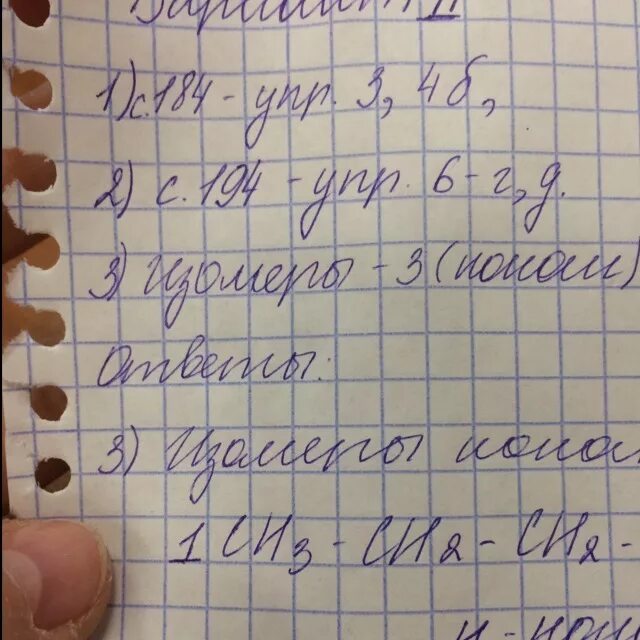 Вариант II
1) с.184 - упр. 3, 4б,
2) с.194 - упр. 6 - г, д.
3) Изомеры - 3 (нонан)
Ответы:
3) Изомеры нонан
1 CH3 - CH2 - CH2 -